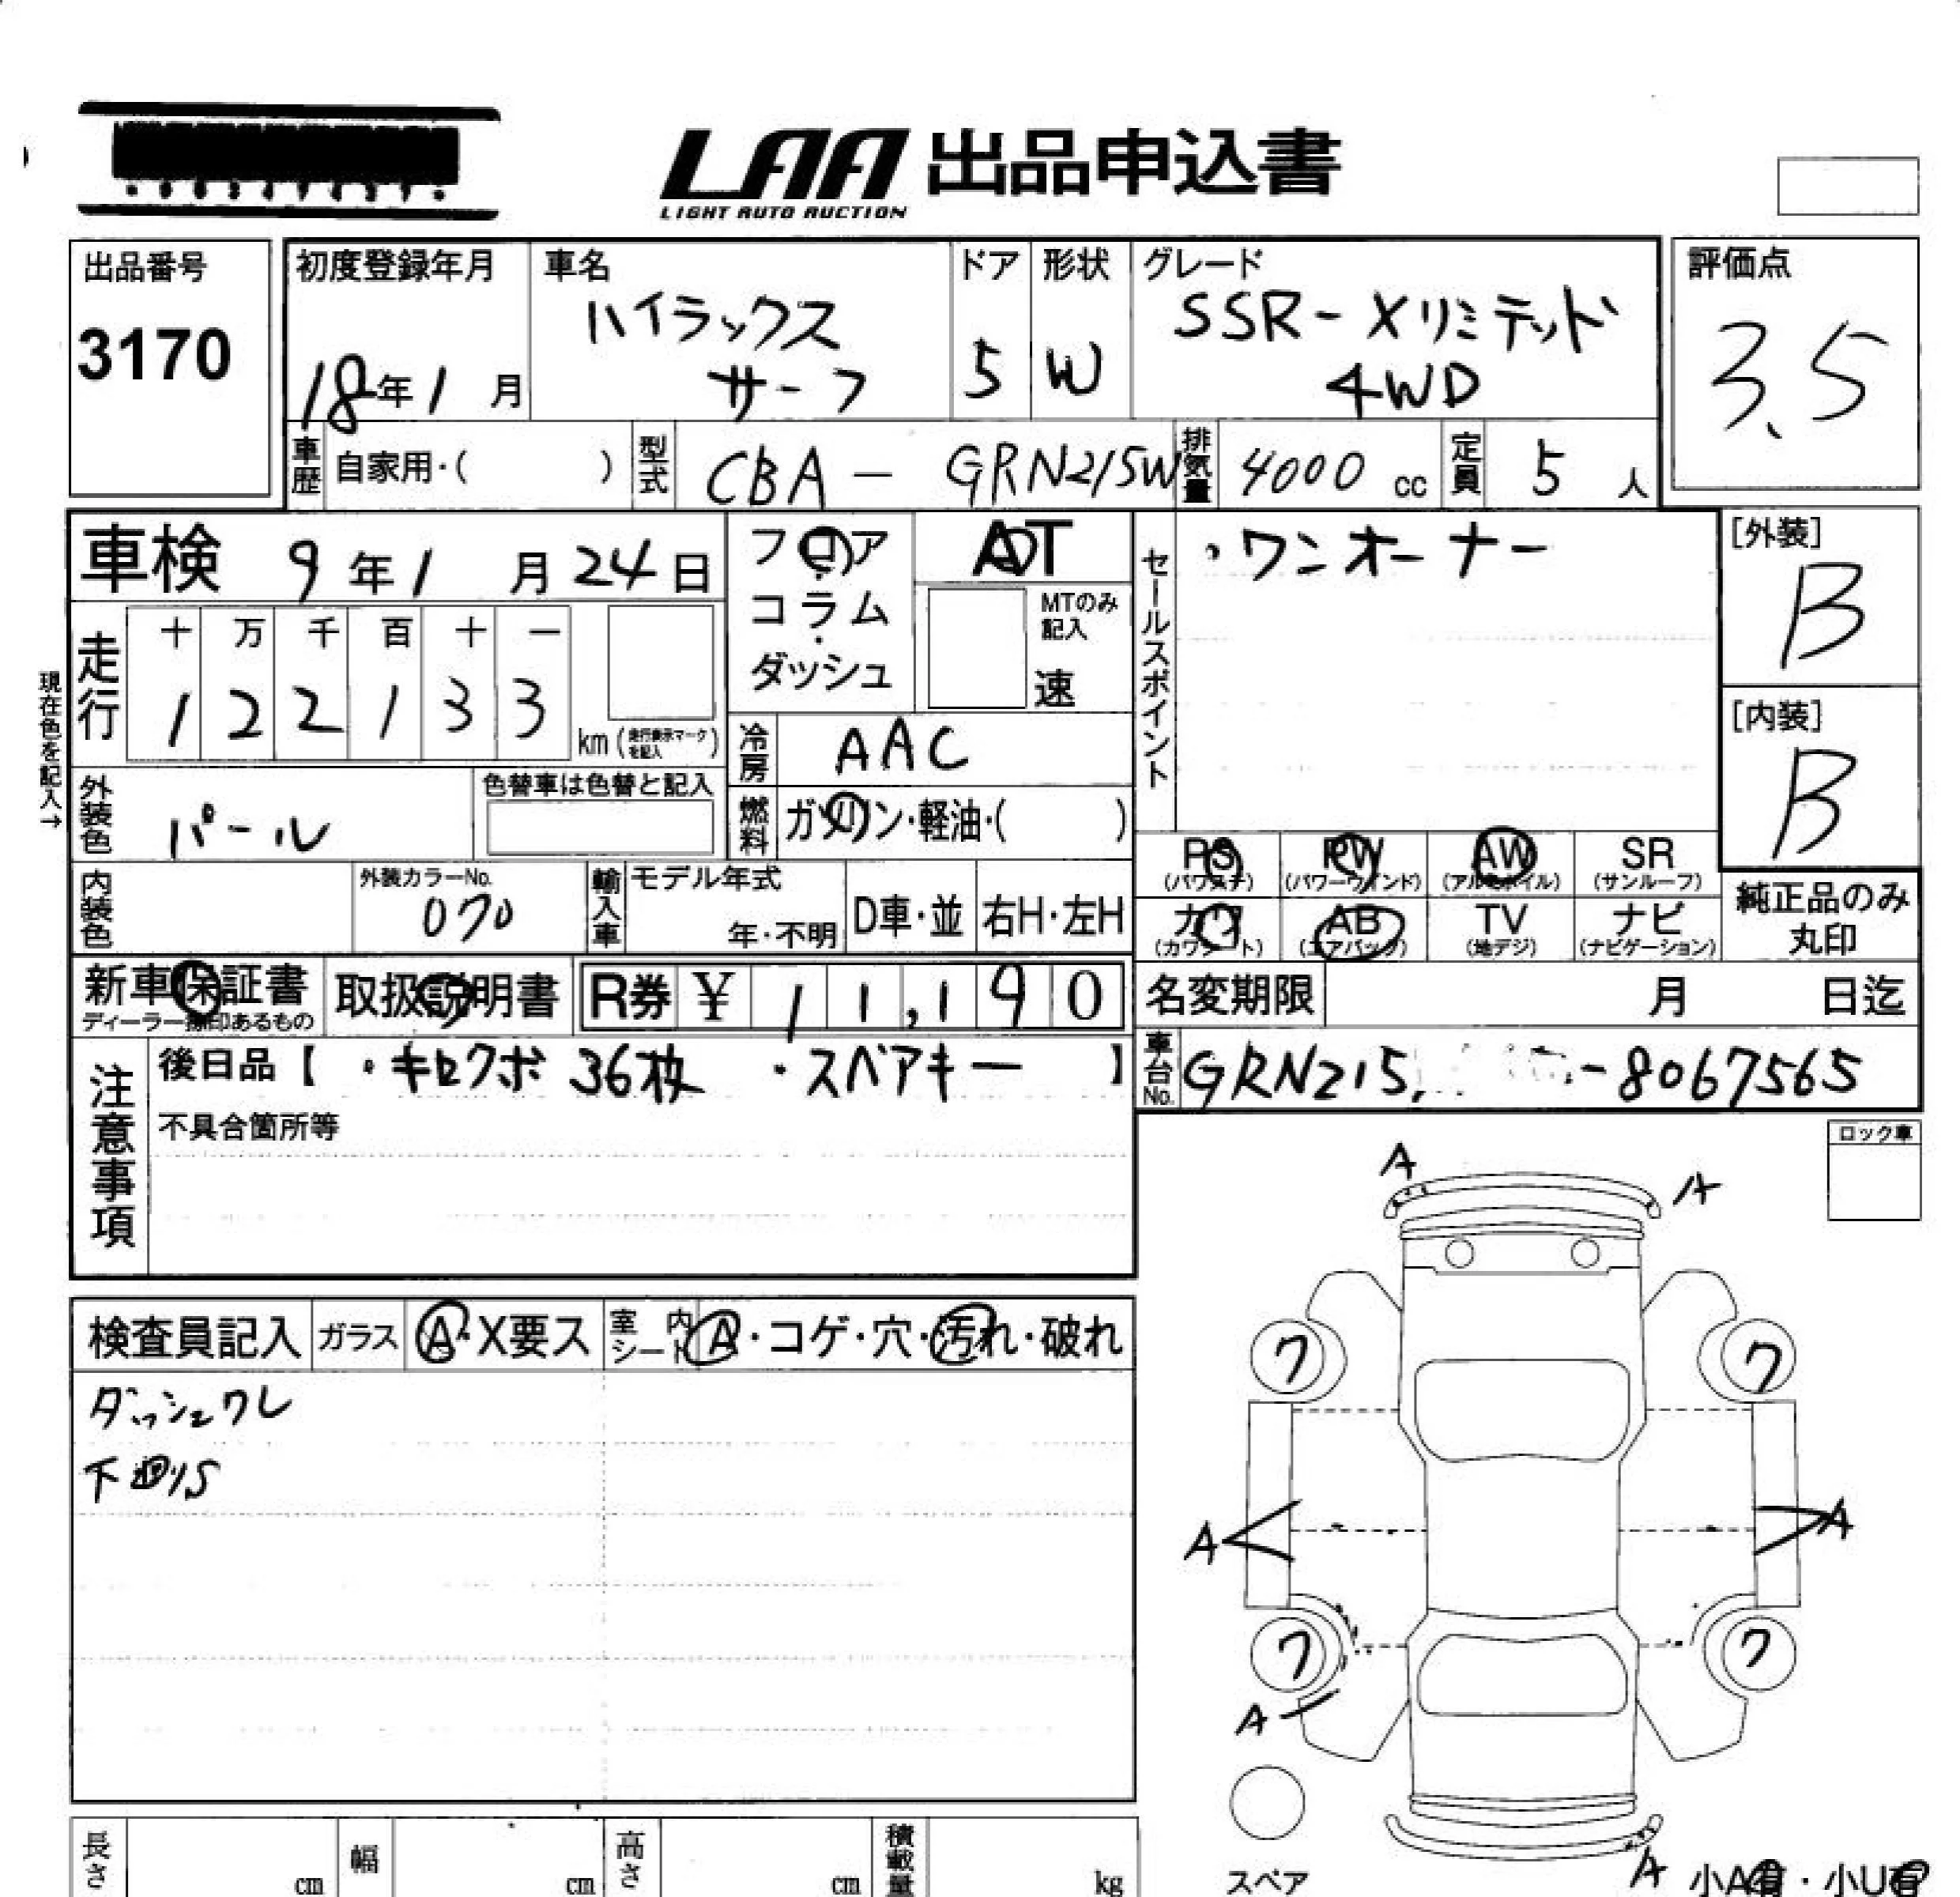 LAA 出品申込書
LIGHT AUTO AUCTION
出品番号
3170
初度登録年月
18年1月
車名
ハイラックス
サーフ
ドア
5
形状
W
グレード
SSR-Xリミテッド
4WD
評価点
3.5
車歴 自家用・( )
型式 CBA - GRN215W
排気量 4000 cc
定員 5 人
車検 9年1月24日
フロア・コラム・ダッシュ
AT
MTのみ記入
速
セールスポイント
・ワンオーナー
[外装]
B
[内装]
B
現在色を記入→
走行
十 万 千 百 十 一
1 2 2 1 3 3
km (走行表示マークを記入)
冷房 AAC
燃料 ガソリン・軽油・( )
外装色 パール
色替車は色替と記入
内装色
外装カラーNo.
070
輸入車
モデル年式
年・不明
D車・並
右H・左H
PS PW AW SR
(パワステ) (パワーウインド) (アルミホイル) (サンルーフ)
カワ AB TV ナビ
(カワシート) (エアバック) (地デジ) (ナビゲーション)
純正品のみ
丸印
新車保証書
ディーラー捺印あるもの
取扱説明書
R券 ¥ 11,190
名変期限 月 日迄
注意事項
後日品【 ・キセクボ 36枚 ・スペアキー 】
不具合箇所等
車台No. GRN215 -8067565
ロック車
A A
検査員記入 ガラス A・X要ス 室内シート A・コゲ・穴・汚れ・破れ
ダッシュワレ
下廻りS
ワ ワ
A A
ワ ワ
A
スペア
A 小A有・小U有
長さ cm 幅 cm 高さ cm 積載量 kg